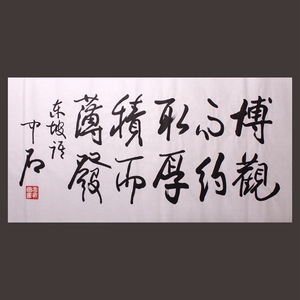 博觀
而约
取厚
積而
薄發
东坡语
中石